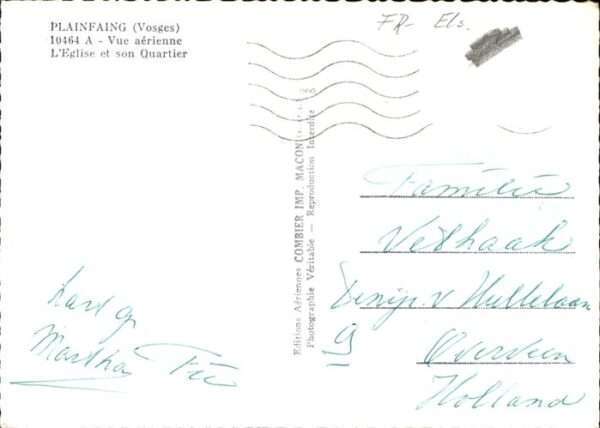 PLAINFAING (Vosges)
10464 A - Vue aérienne
L'Eglise et son Quartier
FR- Els.
Editions Aériennes COMBIER IMP. MACON
Photographie Véritable - Reproduction Interdite
Hart gr
Martha
Familie
Vethaak
v Hullelaan
9
Overveen
Holland